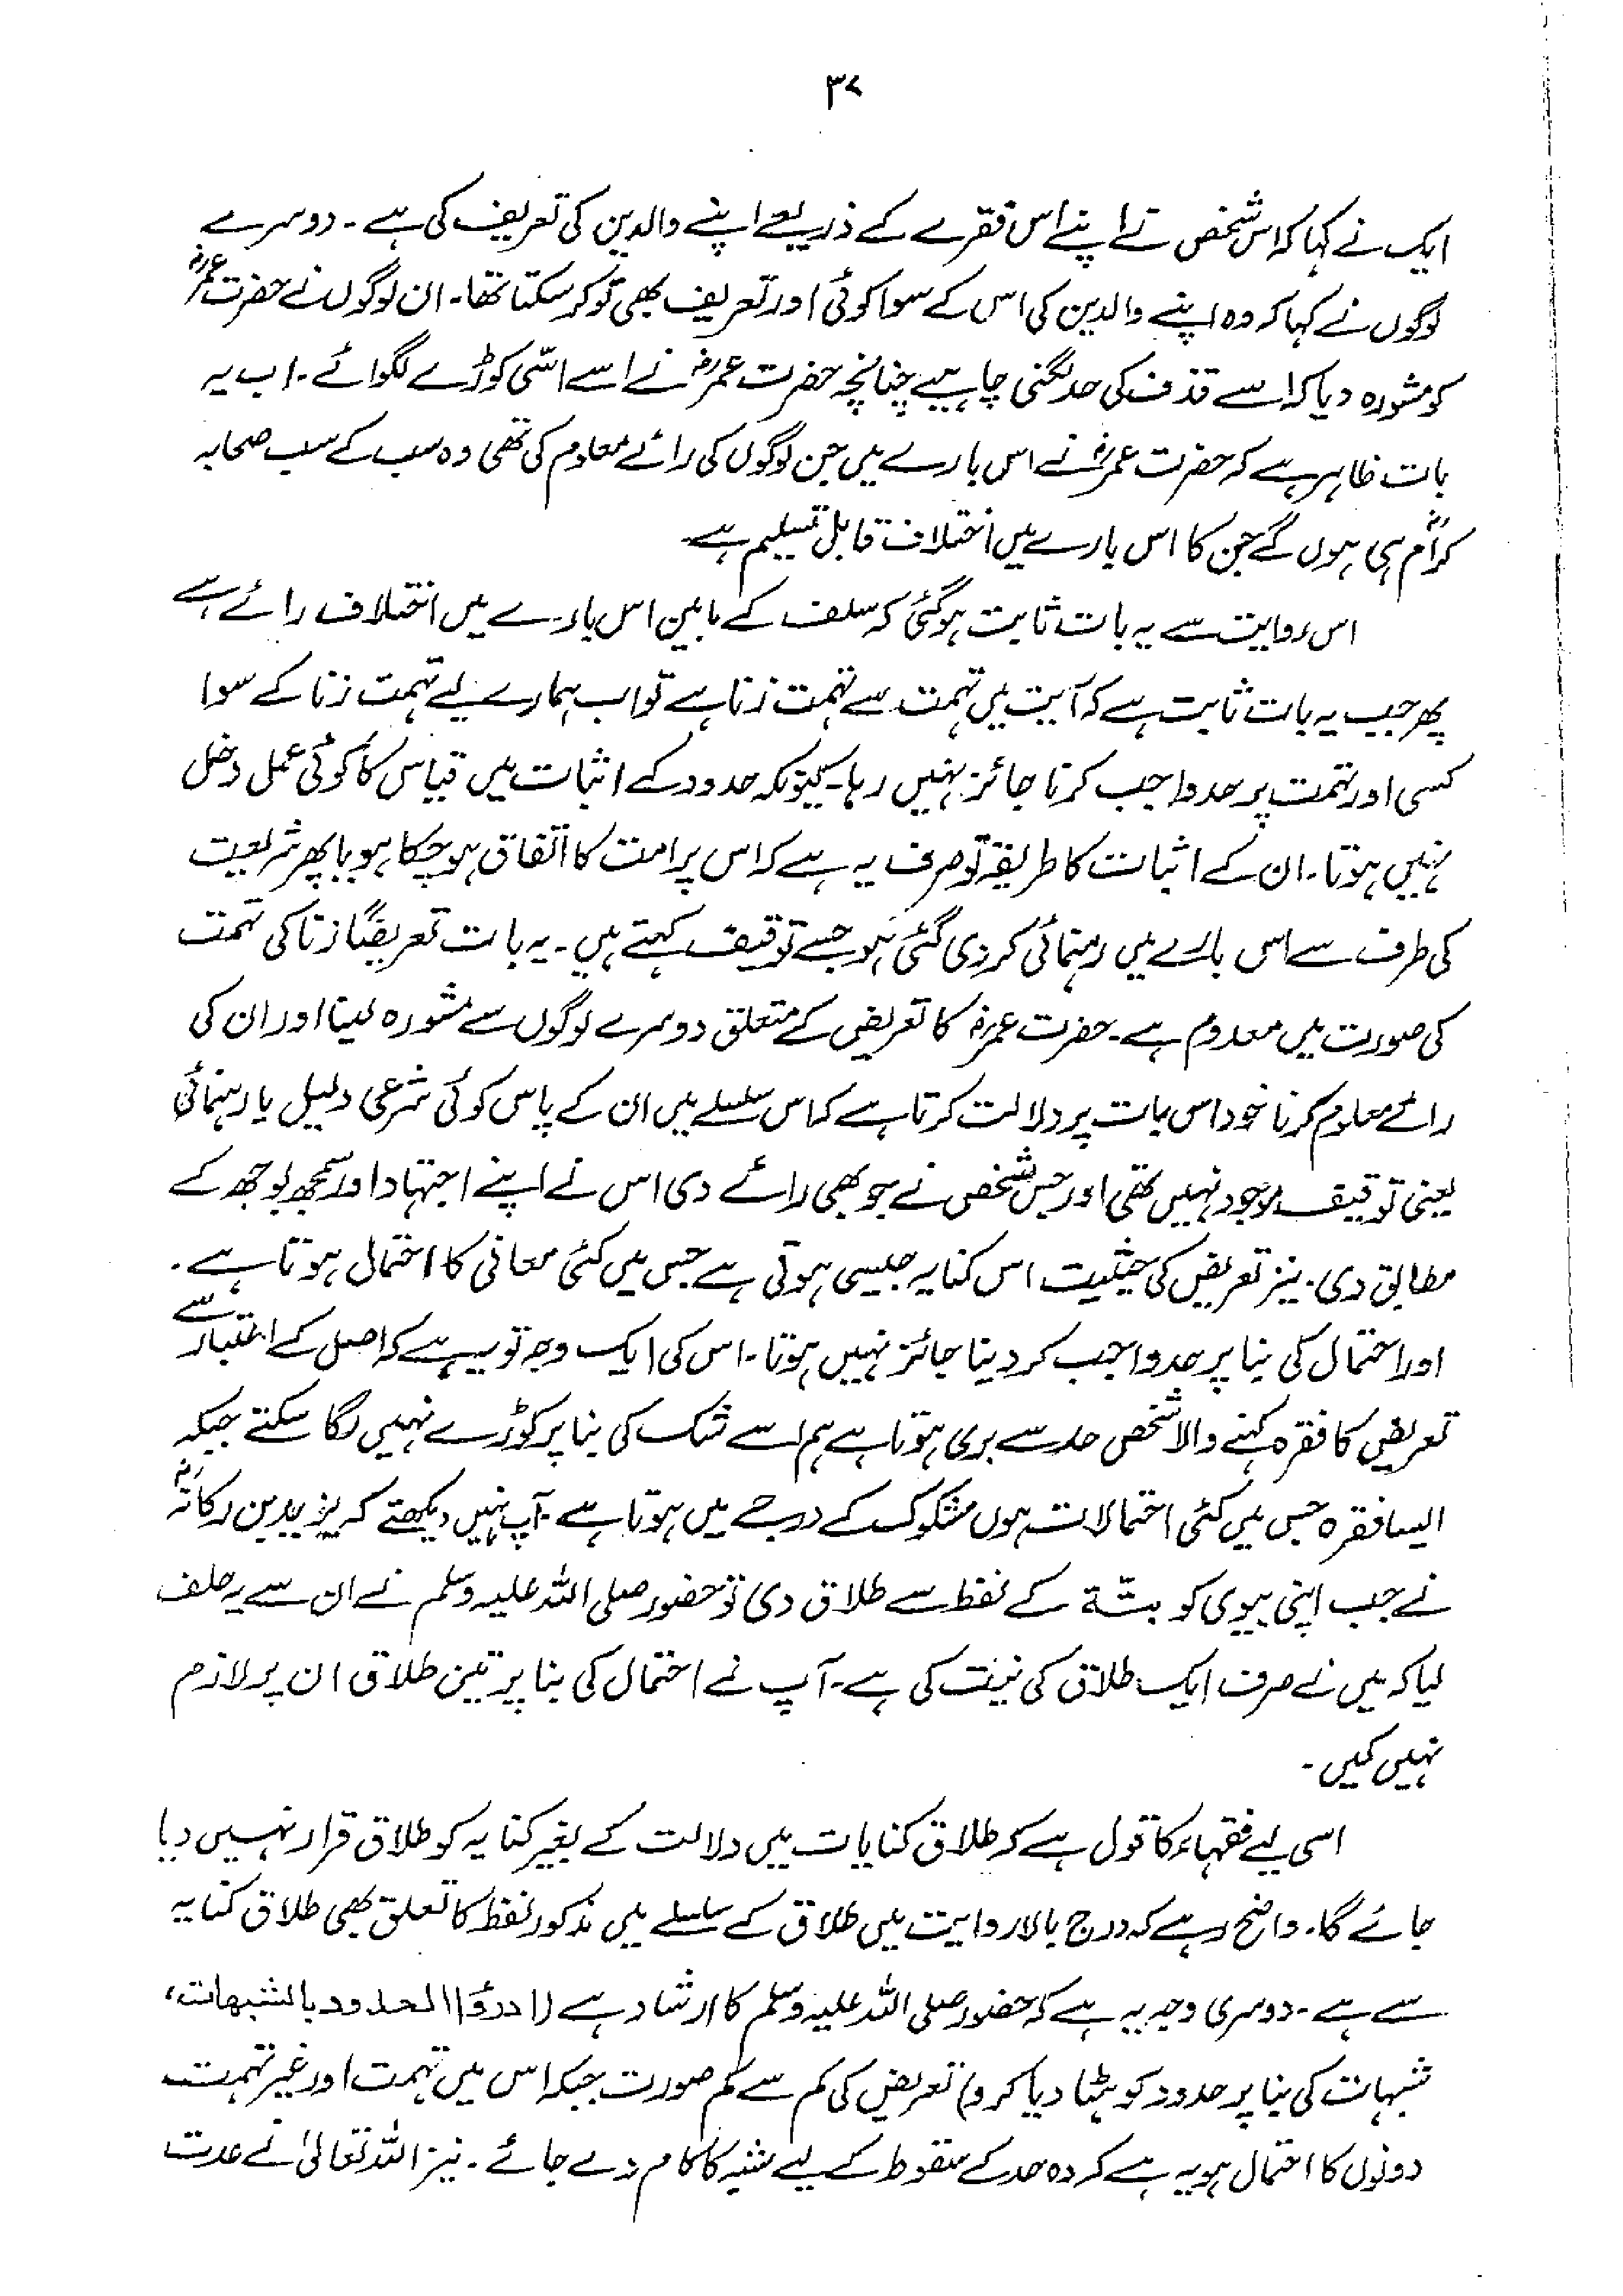 ۳۷
ایک نے کہا کہ اس شخص نے اپنے اس فقرے کے ذریعے اپنے والدین کی تعریف کی ہے۔ دوسرے
لوگوں نے کہا کہ وہ اپنے والدین کی اس کے سوا کوئی اور تعریف بھی تو کر سکتا تھا۔ ان لوگوں نے حضرت عمرؓ
کو مشورہ دیا کہ اسے قذف کی حد لگنی چاہیے چنانچہ حضرت عمرؓ نے اسے اسّی کوڑے لگوائے۔ اب یہ
بات ظاہر ہے کہ حضرت عمرؓ نے اس بارے میں جن لوگوں کی رائے معلوم کی تھی وہ سب کے سب صحابہ
کرامؓ ہی ہوں گے جن کا اس بارے میں اختلاف قابل تسلیم ہے۔
اس روایت سے یہ بات ثابت ہو گئی کہ سلف کے مابین اس بارے میں اختلاف رائے ہے
پھر جب یہ بات ثابت ہے کہ آیت میں تہمت سے تہمت زنا ہے تو اب ہمارے لیے تہمت زنا کے سوا
کسی اور تہمت پر حد واجب کرنا جائز نہیں رہا۔ کیونکہ حدود کے اثبات میں قیاس کا کوئی عمل دخل
نہیں ہوتا۔ ان کے اثبات کا طریقہ تو صرف یہ ہے کہ اس پر امت کا اتفاق ہو چکا ہو یا پھر شریعت
کی طرف سے اس بارے میں رہنمائی کر دی گئی ہو جسے توقیف کہتے ہیں۔ یہ بات تعریضًا زنا کی تہمت
کی صورت میں معدوم ہے۔ حضرت عمرؓ کا تعریض کے متعلق دوسرے لوگوں سے مشورہ لینا اور ان کی
رائے معلوم کرنا خود اس بات پر دلالت کرتا ہے کہ اس سلسلے میں ان کے پاس کوئی شرعی دلیل یا رہنمائی
یعنی توقیف موجود نہیں تھی اور جس شخص نے جو بھی رائے دی اس نے اپنے اجتہاد اور سمجھ بوجھ کے
مطابق دی۔ نیز تعریض کی حیثیت اس کنایہ جیسی ہوتی ہے جس میں کئی معانی کا احتمال ہوتا ہے۔
اور احتمال کی بنا پر حد واجب کر دینا جائز نہیں ہوتا۔ اس کی ایک وجہ تو یہ ہے کہ اصل کے اعتبار سے
تعریض کا فقرہ کہنے والا شخص حد سے بری ہوتا ہے ہم اسے شک کی بنا پر کوڑے نہیں لگا سکتے جبکہ
ایسا فقرہ جس میں کئی احتمالات ہوں مشکوک کے درجے میں ہوتا ہے۔ آپ نہیں دیکھتے کہ یزید بن رکانہؓ
نے جب اپنی بیوی کو بتّۃ کے لفظ سے طلاق دی تو حضور صلی اللہ علیہ وسلم نے ان سے یہ حلف
لیا کہ میں نے صرف ایک طلاق کی نیت کی ہے۔ آپ نے احتمال کی بنا پر تین طلاق ان پر لازم
نہیں کیں۔
اسی لیے فقہاء کا قول ہے کہ طلاق کنایات میں دلالت کے بغیر کنایہ کو طلاق قرار نہیں دیا
جائے گا۔ واضح رہے کہ درج بالا روایت میں طلاق کے سلسلے میں مذکور لفظ کا تعلق بھی طلاق کنایہ
سے ہے۔ دوسری وجہ یہ ہے کہ حضور صلی اللہ علیہ وسلم کا ارشاد ہے (ادرؤا الحدود بالشبهات،
شبہات کی بنا پر حدود کو ہٹا دیا کرو) تعریض کی کم سے کم صورت جبکہ اس میں تہمت اور غیر تہمت
دونوں کا احتمال ہو یہ ہے کہ وہ حد کے سقوط کے لیے شبہ کا کام دے جائے۔ نیز اللہ تعالیٰ نے عدت